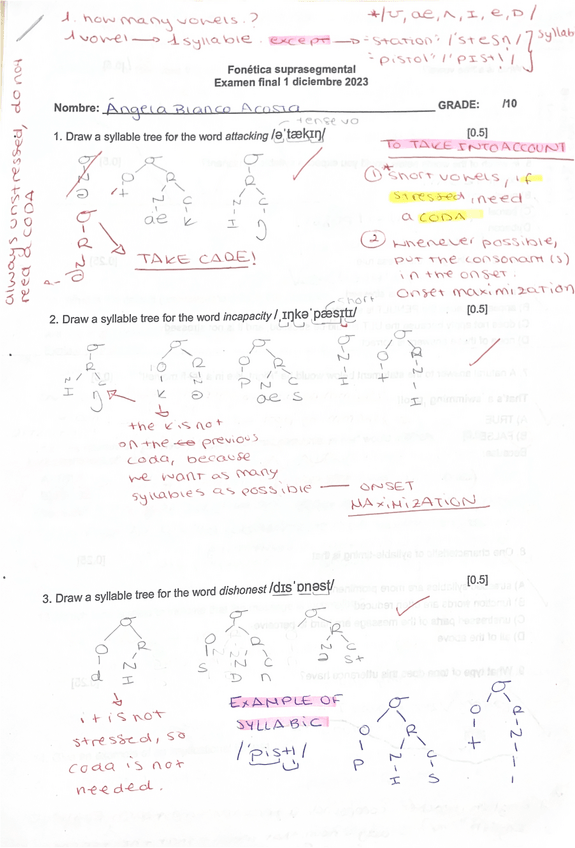 1. how many vowels.?
*/ʊ, ae, ʌ, I, e, D/
1 vowel → 1 syllable. except → "station": /'stesn/
syllab
"pistol": /'pIstl/
Fonética suprasegmental
Examen final 1 diciembre 2023
Nombre: Ángela Blanco Acosta
GRADE: /10
always unstressed, do not
need a CODA
tense vo
1. Draw a syllable tree for the word attacking /əˈtækɪŋ/
[0.5]
σ
N
ə
σ
O R
t N C
ae k
σ
R
N C
I ŋ
σ
R
N
ə
TAKE CARE!
TO TAKE INTO ACCOUNT
1 * short vowels, if
stressed, need
a CODA
2 whenever possible,
put the consonant(s)
in the onset.
Onset maximization
short
2. Draw a syllable tree for the word incapacity /ˌɪŋkəˈpæsɪtɪ/
[0.5]
σ
R
N C
I ŋ
σ
O R
k N
ə
σ
O R
P N C
ae s
σ
R
N
I
σ
O R
t N
I
the k is not
on the previous
coda, because
we want as many
syllables as possible — ONSET
MAXIMIZATION
3. Draw a syllable tree for the word dishonest /dɪsˈɒnəst/
[0.5]
σ
O R
d N
I
σ
O R
S N C
D n
σ
R
N C
ə st
it is not
stressed, so
coda is not
needed.
EXAMPLE OF
SYLLABIC
/'pistl/
σ
O R
P N C
I S
σ
O R
t N
l